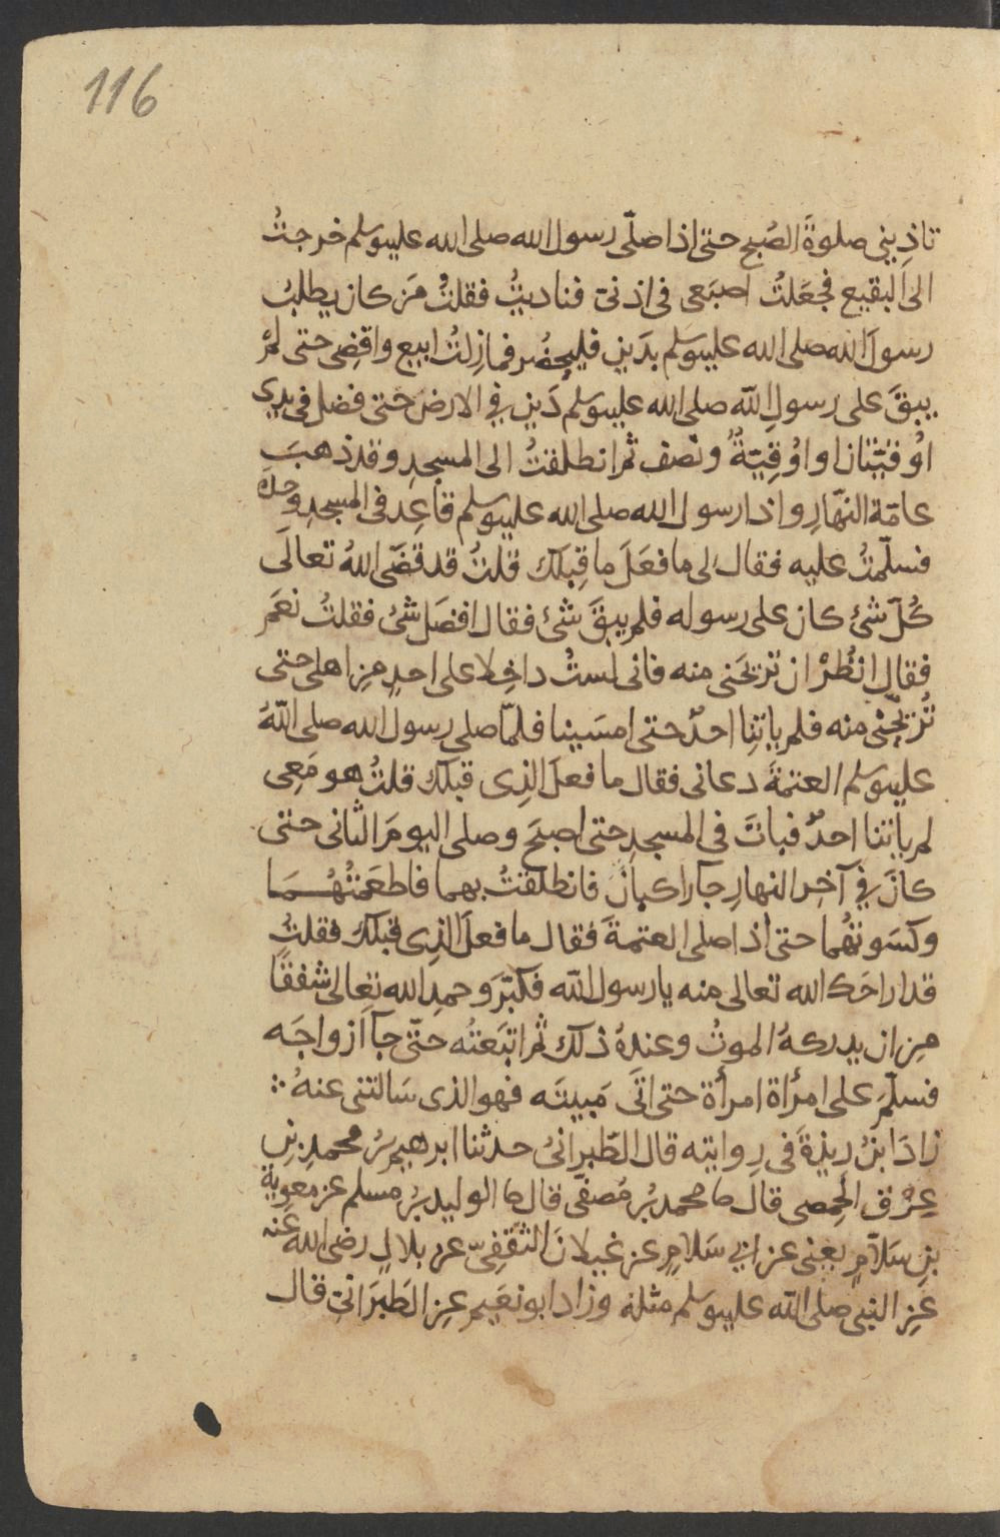 116
تاذِيني صلوةَ الصُبح حتى اذا صلّى رسول الله صلى الله عليه وسلم خرجتُ
الى البقيع فجَعَلتُ اصبَعى فى اذنىّ فناديتُ فقلتُ مَن كان يطلبُ
رسولَ الله صلى الله عليه وسلم بدَينٍ فليحضُر فمازِلتُ ابيع واقضِى حتى لمْ
يبقَ على رسولِ الله صلى الله عليه وسلم دَين في الارض حتى فضل فى يدى
اُوقيّتان او اُوقِيّةٌ ونصف ثم انطلقتُ الى المسجدِ وقد ذهبَ
عامّة النهّارِ واذا رسول الله صلى الله عليه وسلم قاعِد فى المسجدِ وحده
فسلّمتُ عليه فقال لى ما فعَلَ ما قِبَلك قلتُ قد قضَى اللهُ تعالَى
كُلّ شئ كان على رسوله فلم يبقَ شئ فقال افضَل شئ فقلتُ نعَم
فقال انظُرْ ان تريحَنى منه فانى لستُ داخِلا على احدٍ مِن اهلى حتى
تُريحَنِى منه فلم ياتِنا احدٌ حتى امسَينا فلمّا صلى رسول الله صلى اللهُ
عليه وسلم العتمةَ دعانى فقال ما فعلَ الذِى قبلك قلتُ هو مَعِى
لم ياتنا احدٌ فباتَ فى المسجدِ حتى اصبَح وصلى اليومَ الثانى حتى
كانَ في آخر النهارِ جآ راكبان فانطلقتُ بهما فاطعَمتُهُمَا
وكسَوتهُما حتى اذا صلى العتمةَ فقال ما فعلَ الذِى قبلك فقلتُ
قد اراحَك الله تعالى منه يا رسول الله فكبّرَ وحمِد الله تعالى شفقًا
مِن ان يدركهُ الموتُ وعندهُ ذلك ثم اتبَعتُه حتى جآ ازواجَه
فسلّمَ على امرأة امرأة حتى اتَى مَبيتَه فهو الذى سَالتنى عنهُ ∴
زادَ ابنُ ريذةَ فى رِوايته قال الطّبرانىُ حدثنا ابرهيم بنُ محمدِ بنِ
عِرْق الحِمصى قال ما محمد بنُ مُصفّى قال ما الوليد بنُ مسلم عن معوية
بنِ سَلاّمٍ يعنى عن اخي سَلامٍ عن غيلانَ الثقَفِىّ عن بلالٍ رضى الله عنه
عَنِ النبى صلى الله عليه وسلم مثله وزاد ابو نعَيم عنِ الطَبَرَانىّ قال